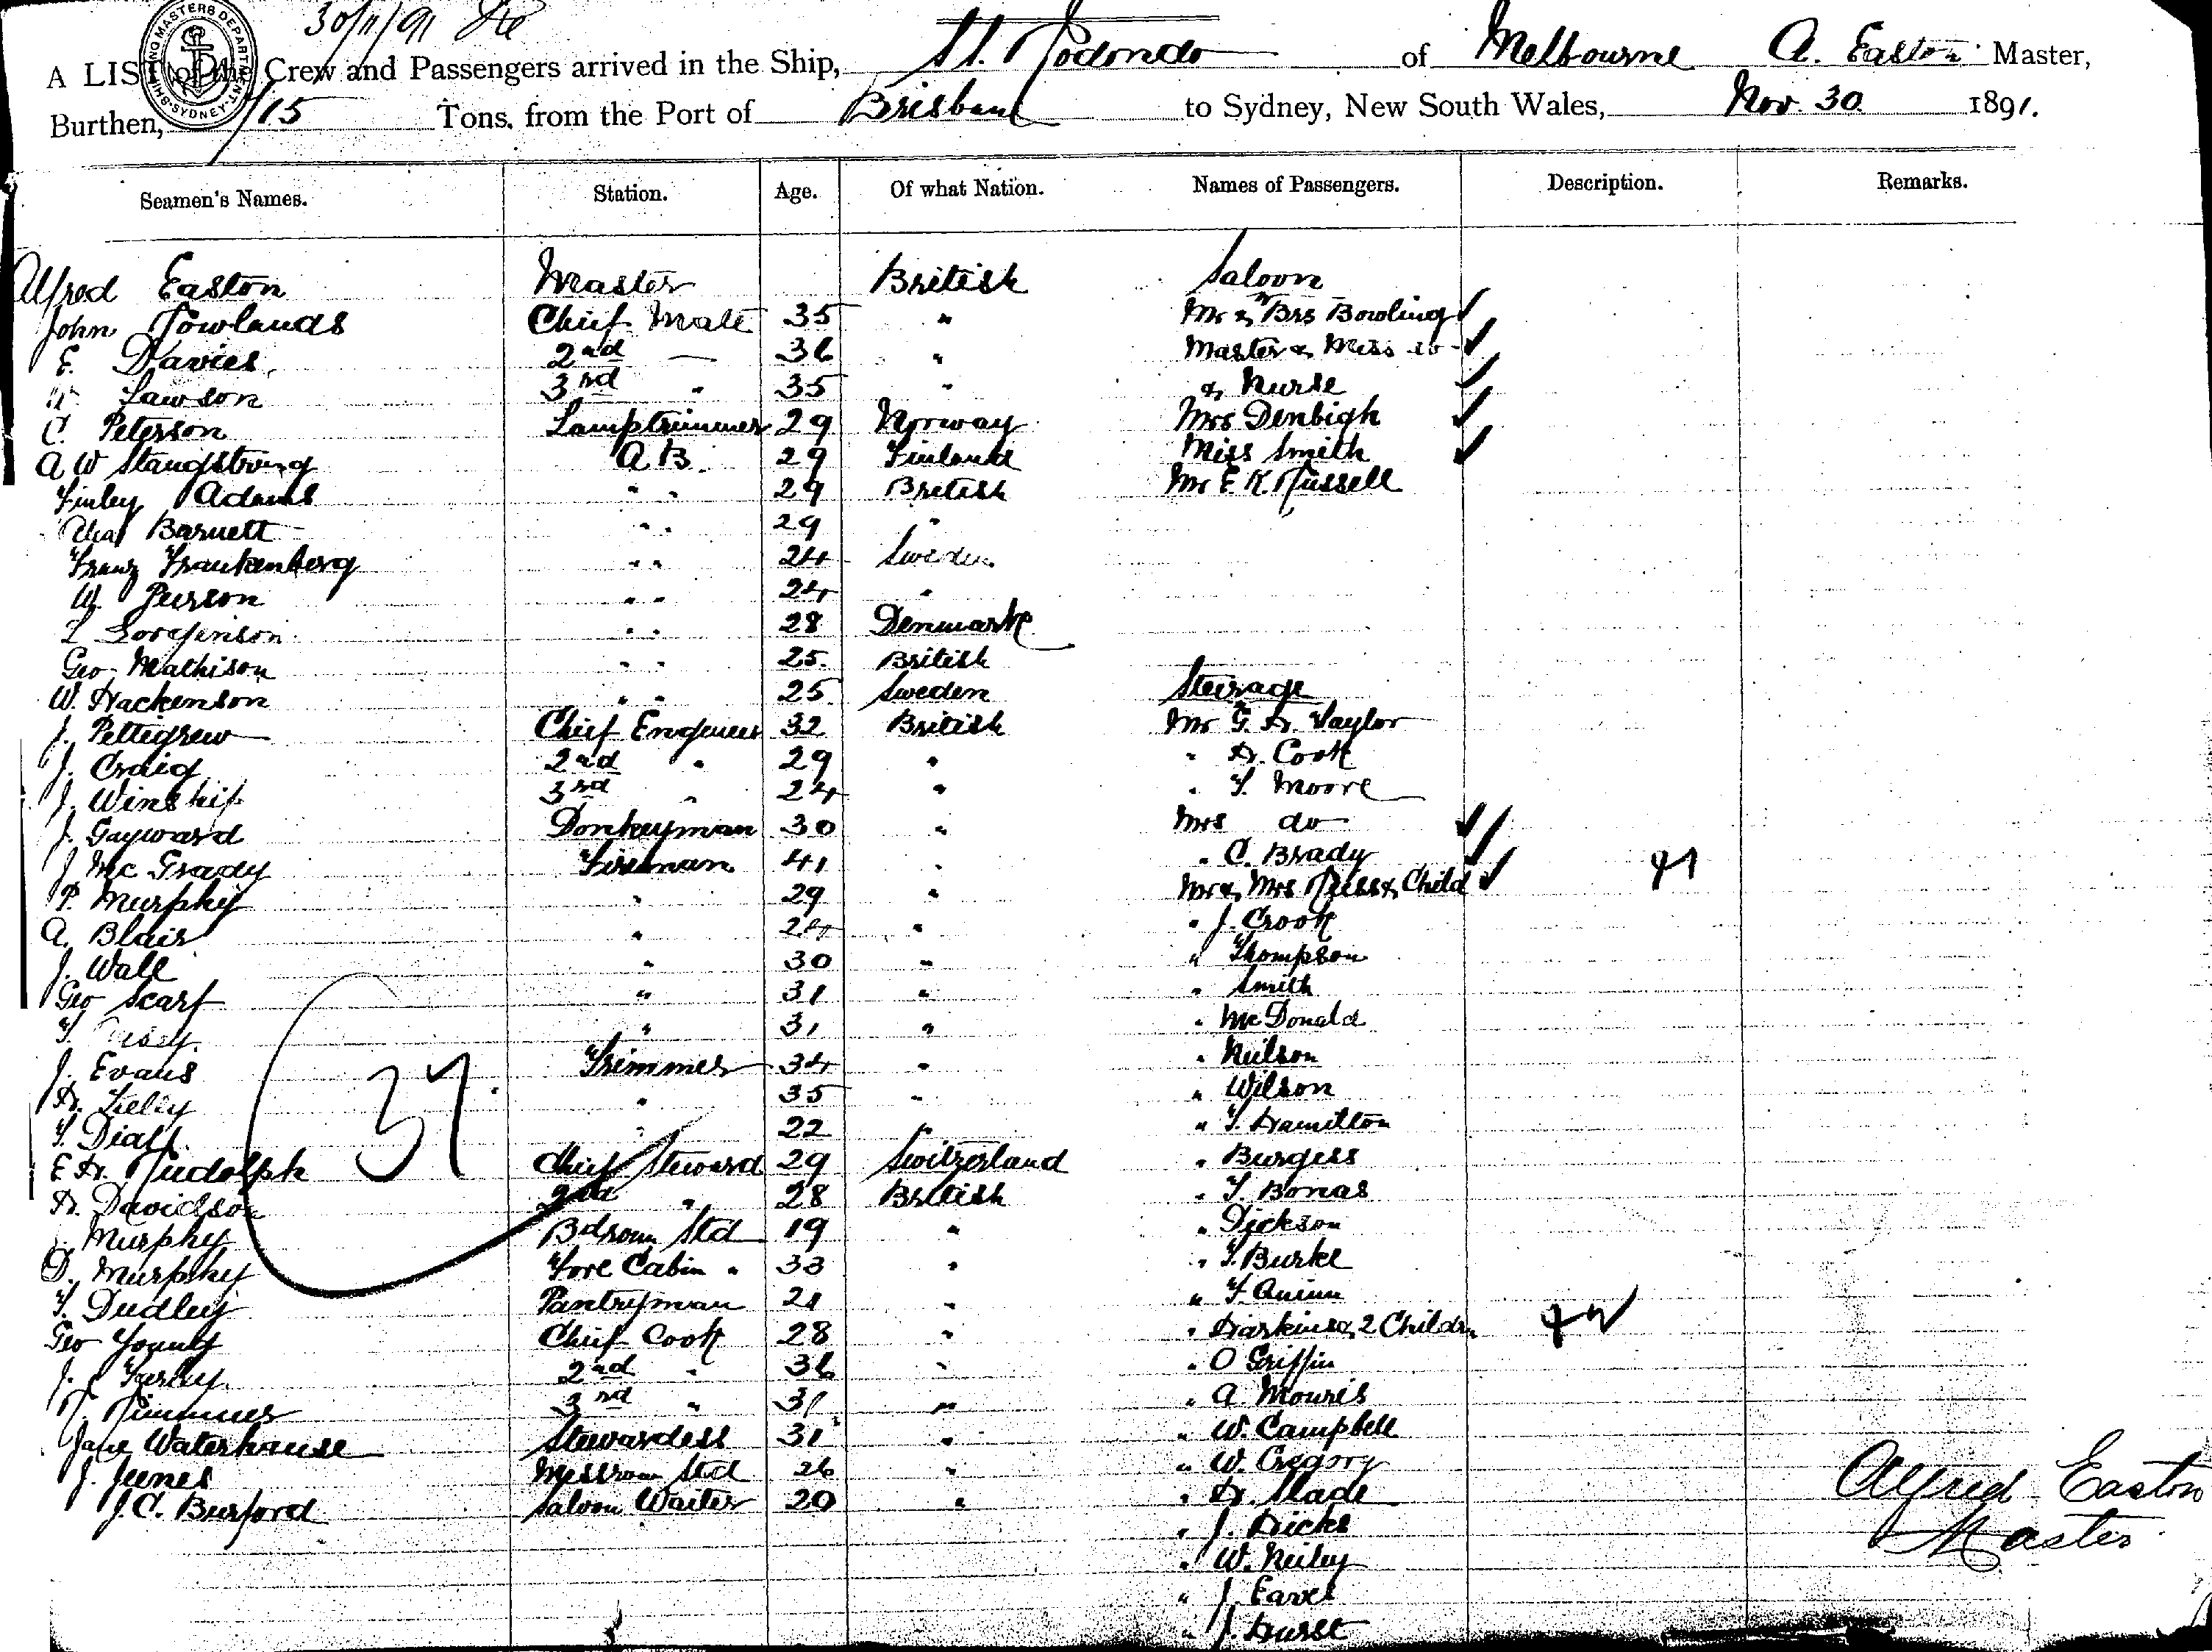 30/11/91
SHIPPING MASTERS DEPARTMENT SYDNEY
A LIST of the Crew and Passengers arrived in the Ship, St. Rodondo of Melbourne A. Easton Master,
Burthen, 715 Tons, from the Port of Brisbane to Sydney, New South Wales, Nov. 30 1891.
Seamen's Names. Station. Age. Of what Nation. Names of Passengers. Description. Remarks.
Alfred Easton Master British Saloon
John Rowlands Chief Mate 35 " Mr & Mrs Bowling
E. Davies 2nd — 36 " Master & Miss do
Lawson 3rd " 35 " & Nurse
C. Peterson Lamptrimmer 29 Norway Mrs Denbigh
A W Stangstrong A.B. 29 Finland Miss Smith
Finley Adams " " 29 British Mr E. K. Russell
Chas Barnett " " 29 "
Franz Frankenberg " " 24 Sweden
W. Peirson " " 24 "
L Sorgenson " " 28 Denmark
Geo Mathison " " 25 British
W. Hackenson " " 25 Sweden Steerage
J. Pettigrew Chief Engineer 32 British Mr G. H. Taylor
J. Craig 2nd " 29 " " H. Cook
J. Winship 3rd " 24 " " T. Moore
J. Gayward Donkeyman 30 " Mrs do
J Mc Grady Fireman 41 " " C. Brady
P. Murphy " 29 " Mr & Mrs Reiss & Child
A. Blair " 24 " " J. Crook
J. Wall " 30 " " Thompson
Geo Scarf " 31 " " Smith
T. " 31 " " McDonald
J. Evans Trimmer 34 " " Neilson
H. Lielly " 35 " " Wilson
T. Diall " 22 " " T. Hamilton
E H. Rudolph Chief Steward 29 Switzerland " Burgess
H. Davidson 2nd " 28 British " T. Bonas
Murphy Bdroom Std 19 " " Dickson
D. Murphy Fore Cabin " 33 " " T. Burke
T. Dudley Pantryman 21 " " F. Quinn
Geo Young Chief Cook 28 " " Haskins & 2 Childn
J. Farley 2nd " 36 " " O Griffin
T. Rimmer 3rd " 31 " " A Mouris
Jane Waterhause Stewardess 31 " " W. Campbell
J. Jeenes Messroom Std 26 " " W. Gregory
J. C. Burford Saloon Waiter 20 " " H. Slade
" J. Hicks
" W. Neiley
" J. Eaves
" J. Hurst
37
Alfred Easton
Master